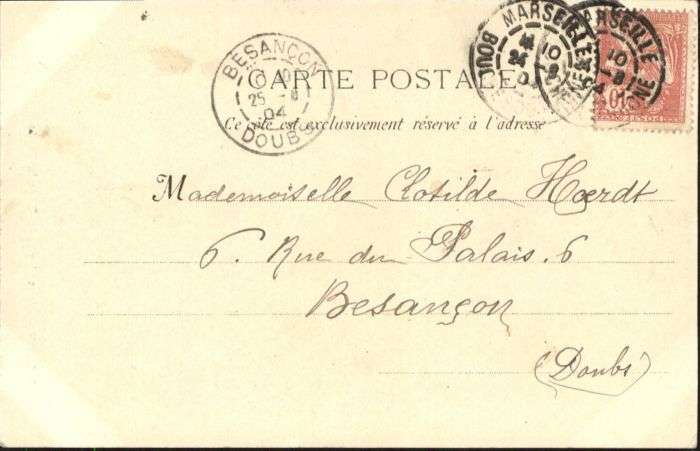 BESANÇON
25 - 8
04
DOUBS
MARSEILLE
MARSEILLE
10
8
04
10
CARTE POSTALE
Ce côté est exclusivement réservé à l'adresse
Mademoiselle Clotilde Hœrdt
6. Rue du Palais. 6
Besançon
(Doubs)